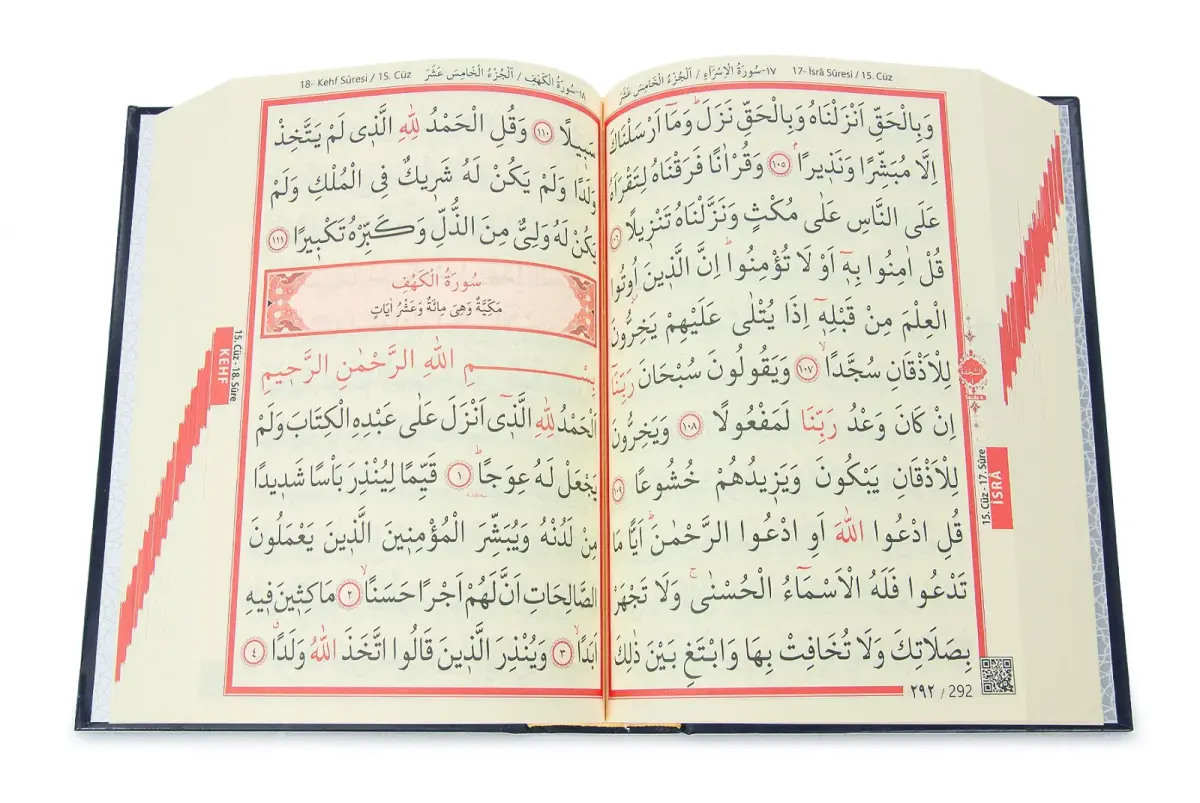 ١٧-سُورَةُ الْاِسْرَاءِ / اَلْجُزْءُ الْخَامِسَ عَشَرَ 17- İsrâ Sûresi / 15. Cüz
وَبِالْحَقِّ اَنْزَلْنَاهُ وَبِالْحَقِّ نَزَلَۜ وَمَٓا اَرْسَلْنَاكَ
اِلَّا مُبَشِّرًا وَنَذ۪يرًاۢ ﴿١٠٥﴾ وَقُرْاٰنًا فَرَقْنَاهُ لِتَقْرَاَهُ
عَلَى النَّاسِ عَلٰى مُكْثٍ وَنَزَّلْنَاهُ تَنْز۪يلًا ﴿١٠٦﴾
قُلْ اٰمِنُوا بِه۪ٓ اَوْ لَا تُؤْمِنُواۜ اِنَّ الَّذ۪ينَ اُوتُوا
الْعِلْمَ مِنْ قَبْلِه۪ٓ اِذَا يُتْلٰى عَلَيْهِمْ يَخِرُّونَ
لِلْاَذْقَانِ سُجَّدًاۙ ﴿١٠٧﴾ وَيَقُولُونَ سُبْحَانَ رَبِّنَٓا
اِنْ كَانَ وَعْدُ رَبِّنَا لَمَفْعُولًا ﴿١٠٨﴾ وَيَخِرُّونَ
لِلْاَذْقَانِ يَبْكُونَ وَيَز۪يدُهُمْ خُشُوعًا ﴿١٠٩﴾
قُلِ ادْعُوا اللّٰهَ اَوِ ادْعُوا الرَّحْمٰنَۜ اَيًّا مَا
تَدْعُوا فَلَهُ الْاَسْمَٓاءُ الْحُسْنٰىۚ وَلَا تَجْهَرْ
بِصَلَاتِكَ وَلَا تُخَافِتْ بِهَا وَابْتَغِ بَيْنَ ذٰلِكَ
٢٩٢ / 292
15. Cüz - 17. Sûre
İSRÂ
18- Kehf Sûresi / 15. Cüz ١٨-سُورَةُ الْكَهْفِ / اَلْجُزْءُ الْخَامِسَ عَشَرَ
سَب۪يلًا ﴿١١٠﴾ وَقُلِ الْحَمْدُ لِلّٰهِ الَّذ۪ي لَمْ يَتَّخِذْ
وَلَدًا وَلَمْ يَكُنْ لَهُ شَر۪يكٌ فِي الْمُلْكِ وَلَمْ
يَكُنْ لَهُ وَلِيٌّ مِنَ الذُّلِّ وَكَبِّرْهُ تَكْب۪يرًا ﴿١١١﴾
سُورَةُ الْكَهْفِ
مَكِّيَّةٌ وَهِيَ مِائَةٌ وَعَشْرُ اٰيَاتٍ
بِسْمِ اللّٰهِ الرَّحْمٰنِ الرَّح۪يمِ
اَلْحَمْدُ لِلّٰهِ الَّذ۪ٓي اَنْزَلَ عَلٰى عَبْدِهِ الْكِتَابَ وَلَمْ
يَجْعَلْ لَهُ عِوَجًاۜ ﴿١﴾ قَيِّمًا لِيُنْذِرَ بَأْسًا شَد۪يدًا
مِنْ لَدُنْهُ وَيُبَشِّرَ الْمُؤْمِن۪ينَ الَّذ۪ينَ يَعْمَلُونَ
الصَّالِحَاتِ اَنَّ لَهُمْ اَجْرًا حَسَنًاۙ ﴿٢﴾ مَاكِث۪ينَ ف۪يهِ
اَبَدًاۙ ﴿٣﴾ وَيُنْذِرَ الَّذ۪ينَ قَالُوا اتَّخَذَ اللّٰهُ وَلَدًاۗ ﴿٤﴾
15. Cüz - 18. Sûre
KEHF